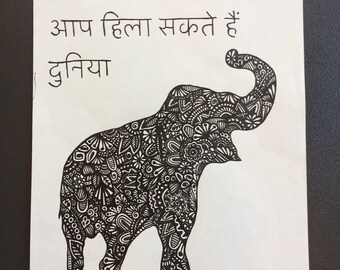 आप हिला सकते हैं
दुनिया